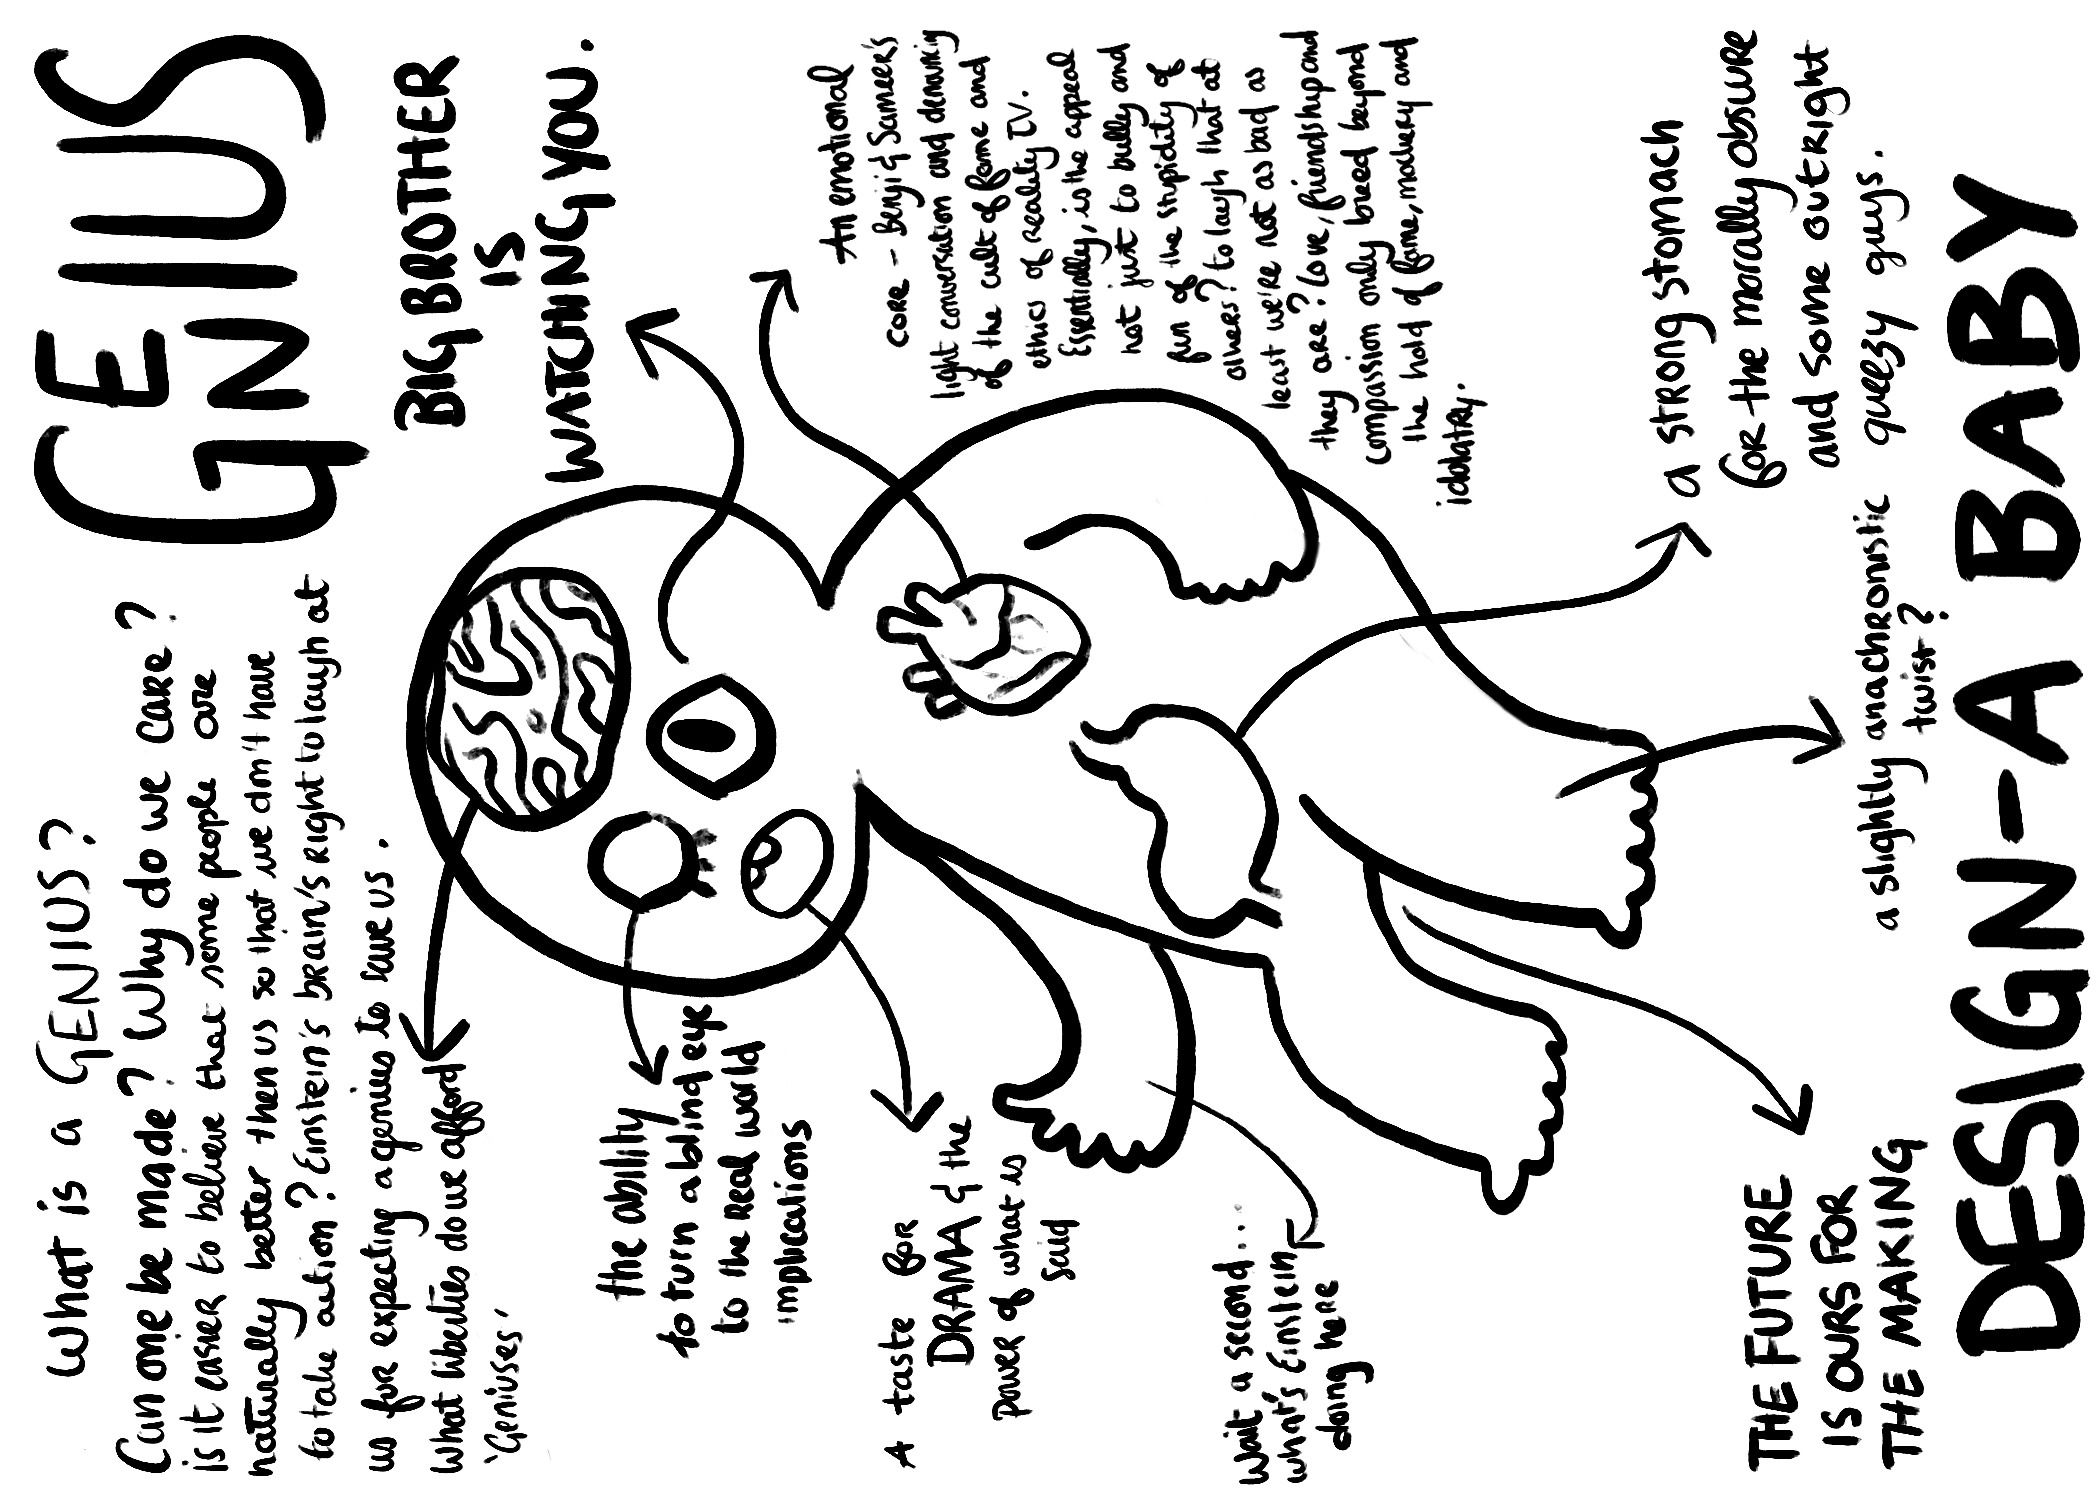 What is a GENIUS?
Can one be made? Why do we care?
is it easier to believe that some people are
naturally better then us so that we don't have
to take action? Einstein's brain's right to laugh at
us for expecting a genius to save us.
What liberties do we afford
'Geniuses'
GENIUS
BIG BROTHER
IS
WATCHING YOU.
the ability
to turn a blind eye
to the real world
implications
A taste for
DRAMA & the
power of what is
said
An emotional
core - Benji & Sameer's
light conversation and
of the cult of fame and
ethics of reality TV.
Essentially, is the appeal
not just to bully and
fun of the stupidity of
others? to laugh that at
least we're not as bad as
they are? Love, friendship and
compassion only breed beyond
the hold of fame, mockery and
idolatry.
Wait a second...
what's Einstein
doing here
a strong stomach
for the morally obsure
and some outright
queezy guys.
THE FUTURE
IS OURS FOR
THE MAKING
a slightly anachronistic
twist?
DESIGN-A BABY